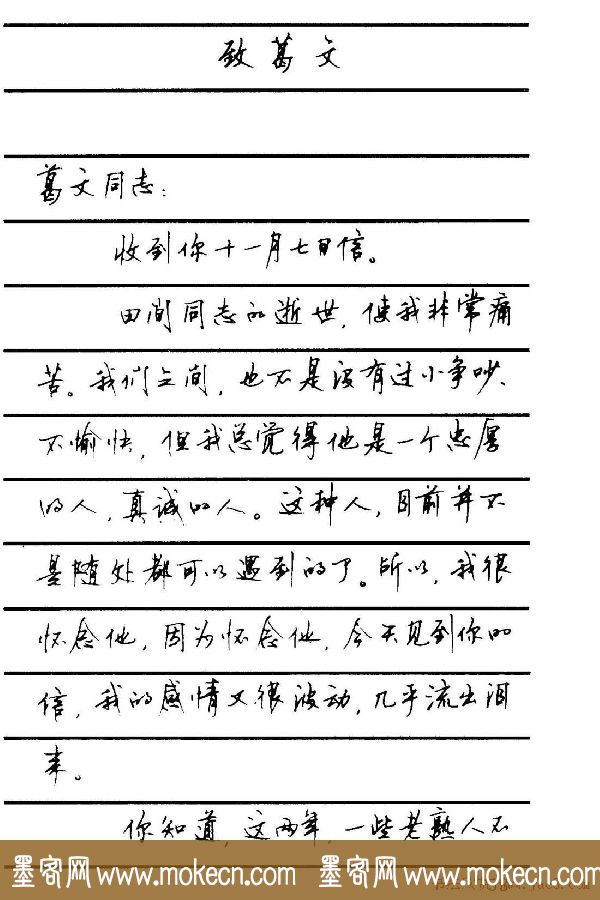 致葛文
葛文同志：
收到你十一月七日信。
田间同志的逝世，使我非常痛
苦。我们之间，也不是没有过小争吵、
不愉快，但我总觉得他是一个忠厚
的人，真诚的人。这种人，目前并不
是随处都可以遇到的了。所以，我很
怀念他，因为怀念他，今天见到你的
信，我的感情又很波动，几乎流出泪
来。
你知道，这两年，一些老熟人不
墨客网 www.mokecn.com 墨客网 www.mokecn.com